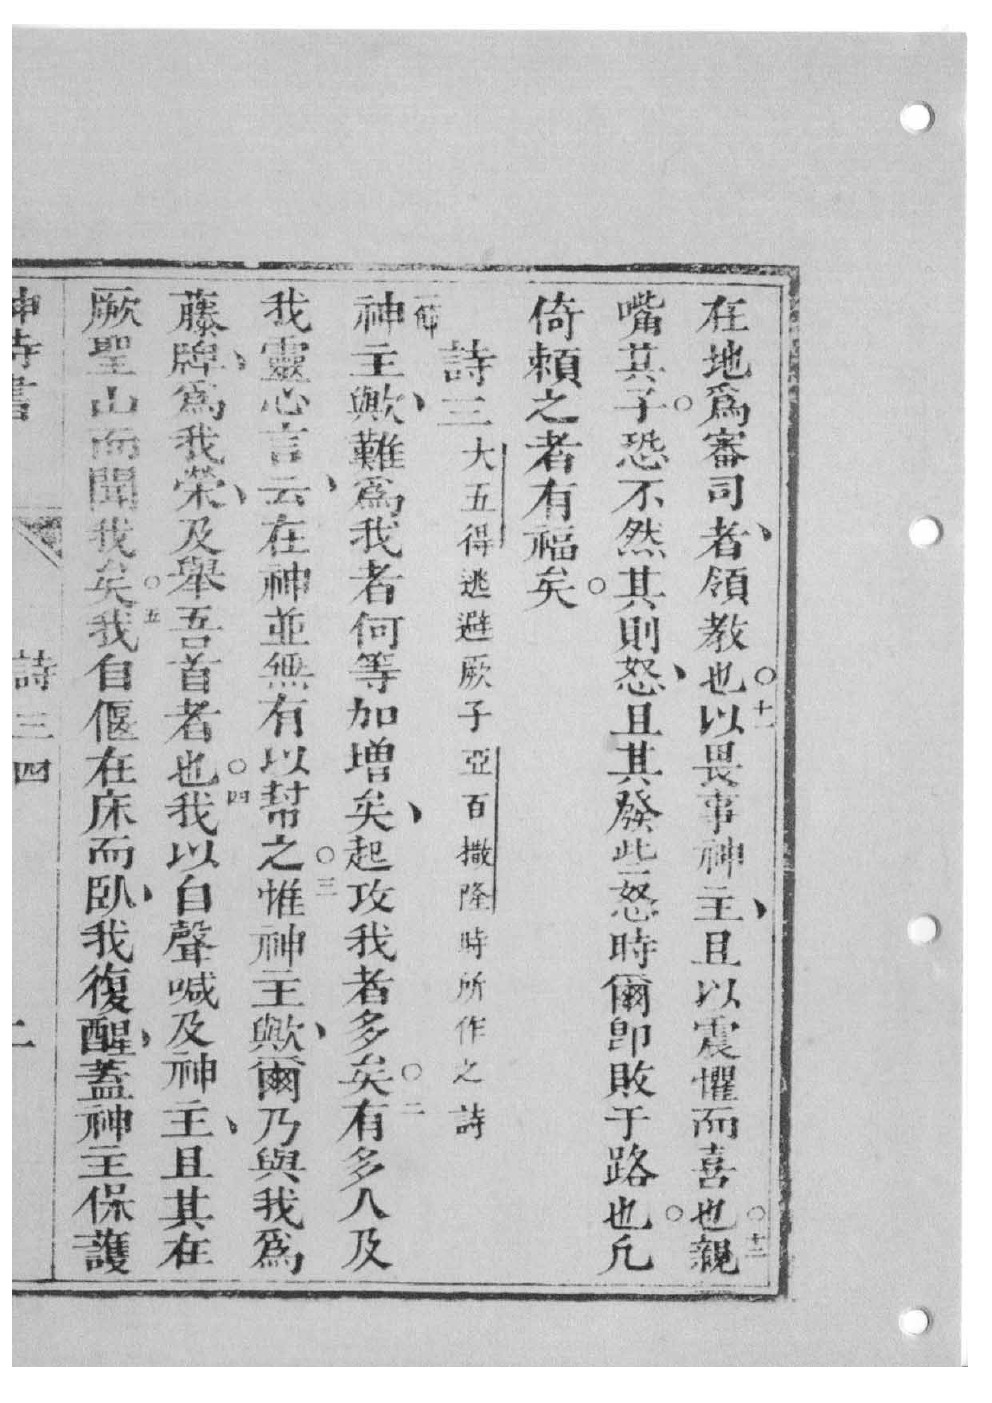 在地爲審司者、領教也。十一以畏事神主、且以震懼而喜也。十二親
嘴其子。恐不然其則怒、且其發此怒時爾卽敗于路也。凡
倚賴之者有福矣。
詩三 大五得逃避厥子亞百撒隆時所作之詩
一節神主歟、難爲我者何等加增矣、起攻我者多矣。二有多人及
我靈心言云、在神並無有以幫之。三惟神主歟、爾乃與我爲
藤牌、爲我榮、及舉吾首者也。四我以自聲喊及神主、且其在
厥聖山而聞我矣。五我自偃在床而臥、我復醒、蓋神主保護
神詩書 詩三四 二